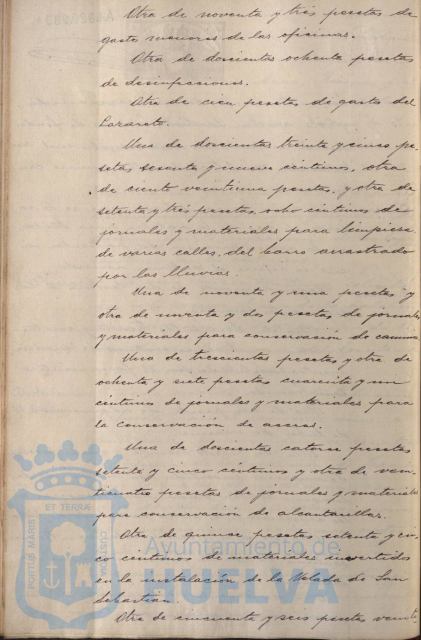 Otra de noventa y tres pesetas de
gastos menores de las oficinas.
Otra de doscientas ochenta pesetas
de desinfecciones.
Otra de cien pesetas de gastos del
Lazareto.
Una de doscientas treinta y cinco pe-
setas sesenta y nueve céntimos, otra
de ciento veintiuna pesetas, y otra de
setenta y tres pesetas, ocho céntimos de
jornales y materiales para limpieza
de varias calles, del barro arrastrado
por las lluvias.
Una de noventa y una pesetas y
otra de noventa y dos pesetas de jornales
y materiales para conservación de caminos
Una de trescientas pesetas y otra de
ochenta y siete pesetas cuarenta y un
céntimos de jornales y materiales para
la conservación de aceras.
Una de doscientas catorce pesetas
setenta y cinco céntimos y otra de vein-
ticuatro pesetas de jornales y materiales
para conservación de alcantarillas.
Otra de quince pesetas setenta y cin-
co céntimos de materiales invertidos
en la instalación de la Velada de San
Sebastián.
Otra de cincuenta y seis pesetas veinte
PORTUS MARIS ET TERRÆ CUSTODIA
Ayuntamiento de
HUELVA